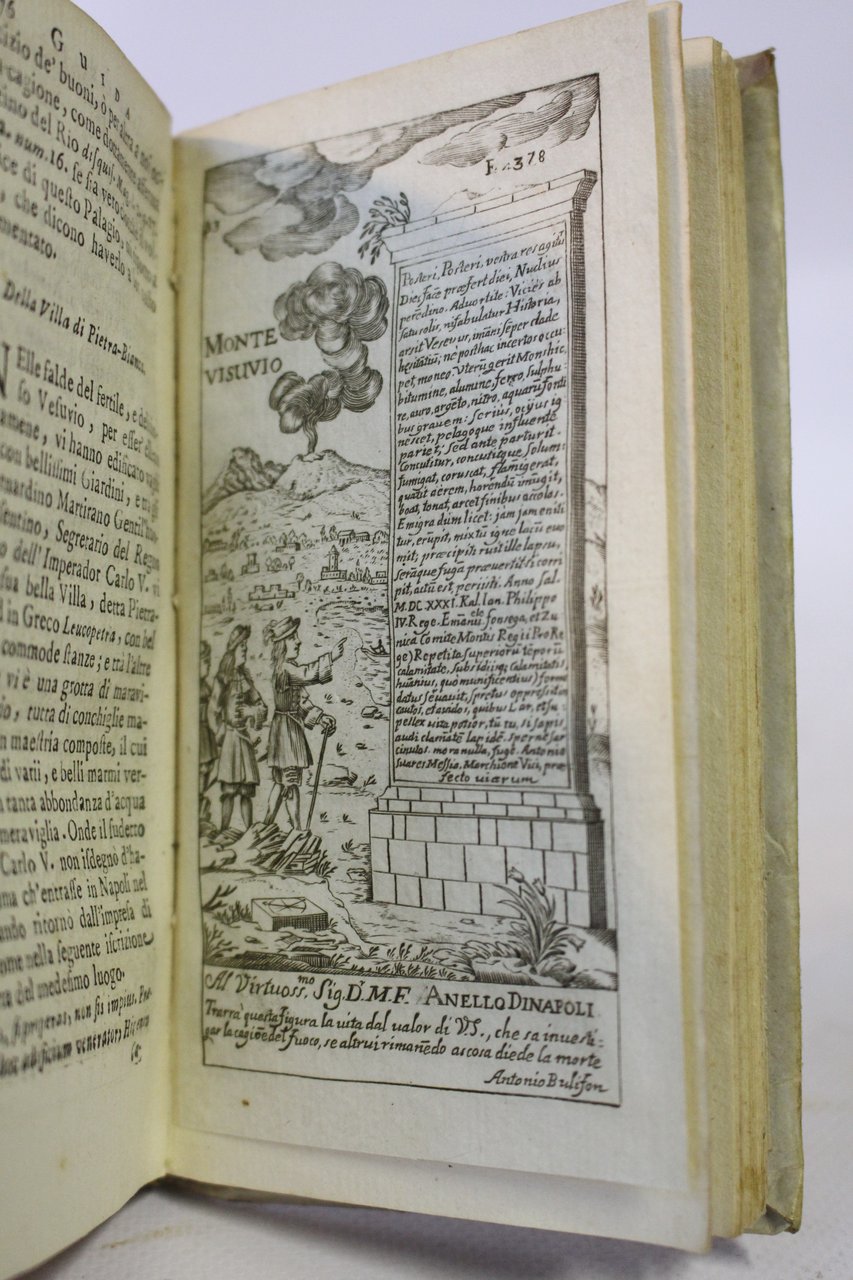 76
GUIDA
tizio de' buoni, ò per altra
cagione, come
tino del Rio disquis. Mag.
num. 16. se sia vero
ce di questo Palagio,
, che dicono haverlo
mentato.
Della Villa di Pietra-Bianca.
NElle falde del fertile, e
so Vesuvio, per esser
amene, vi hanno edificato
con bellissimi Giardini, e
nardino Martirano Gentil'huo-
sentino, Segretario del Regno
dell' Imperador Carlo V. vi
sua bella Villa, detta Pietra-
in Greco Leucopetra, con bel
commode stanze; e trà l'altre
vi è una grotta di maravi-
, tutta di conchiglie ma-
n maestria composte, il cui
di varii, e belli marmi ver-
tanta abbondanza d'acqua
meraviglia. Onde il sudetto
Carlo V. non isdegnò d'ha-
ma ch'entrasse in Napoli nel
ando ritornò dall'impresa di
ome nella seguente iscrizione
del medesimo luogo.
progeras, non sis impius.
ædificium venerator: Hic
F. 378
MONTE
VISUVIO
Posteri, Posteri, vestra res agitur
Dies facē præfert diei, Nudius
perēdino. Advortite: Vicies ab
satu solis, ni fabulatur Historia,
arsit Vesevus, imāni sēper clade
hęsitātiū; ne posthac incertos occu-
pet, moneo. Uterū gerit Mons hic,
bitumine, alumine, ferro, sulphu-
re, auro, argēto, nitro, aquarū fonti
bus gravem: serius, ocyus ig
nescet, pelagoque influente
pariet; sed ante parturit.
Concutitur, concutitque solum:
fumigat, coruscat, flamigerat,
quatit aerem, horēndū imugit,
boat, tonat, arcet finibus accolas.
Emigra dum licet: jam jam eniti
tur, erūpit, mixtū igne lacū evo
mit; præcipiti ruit ille lapsu,
serāque fugā prævertit si corri
pit, actū est, periisti. Anno Sal.
M.DC.XXXI. Kal. Ian. Philippo
IV. Rege. Emānuele Fonsega, et Zu
nica Comite Montis Regii Pro Re
ge) Repetita superiorū tēporū
calamitate, subsidiisq; calamitatis,
huānius, quò munificentius) formi
datus sēvavit, spretus oppressit in
cautos, et avidos, quibus Lar, et su-
pellex vita potior, tū tu, si sapis,
audi clamātē lapidē. Sperne Lar
cinulos. mora nulla, fuge. Antonio
Suares Messia. Marchione Vici, præ
fecto viarum
Al Virtuoss.mo Sig. D. M. F. ANELLO DINAPOLI
Trarrà questa figura la vita dal valor di V.S., che sa investi-
gar la cagiōe del fuoco, se altrui rimanēdo ascosa diede la morte
Antonio Bulifon